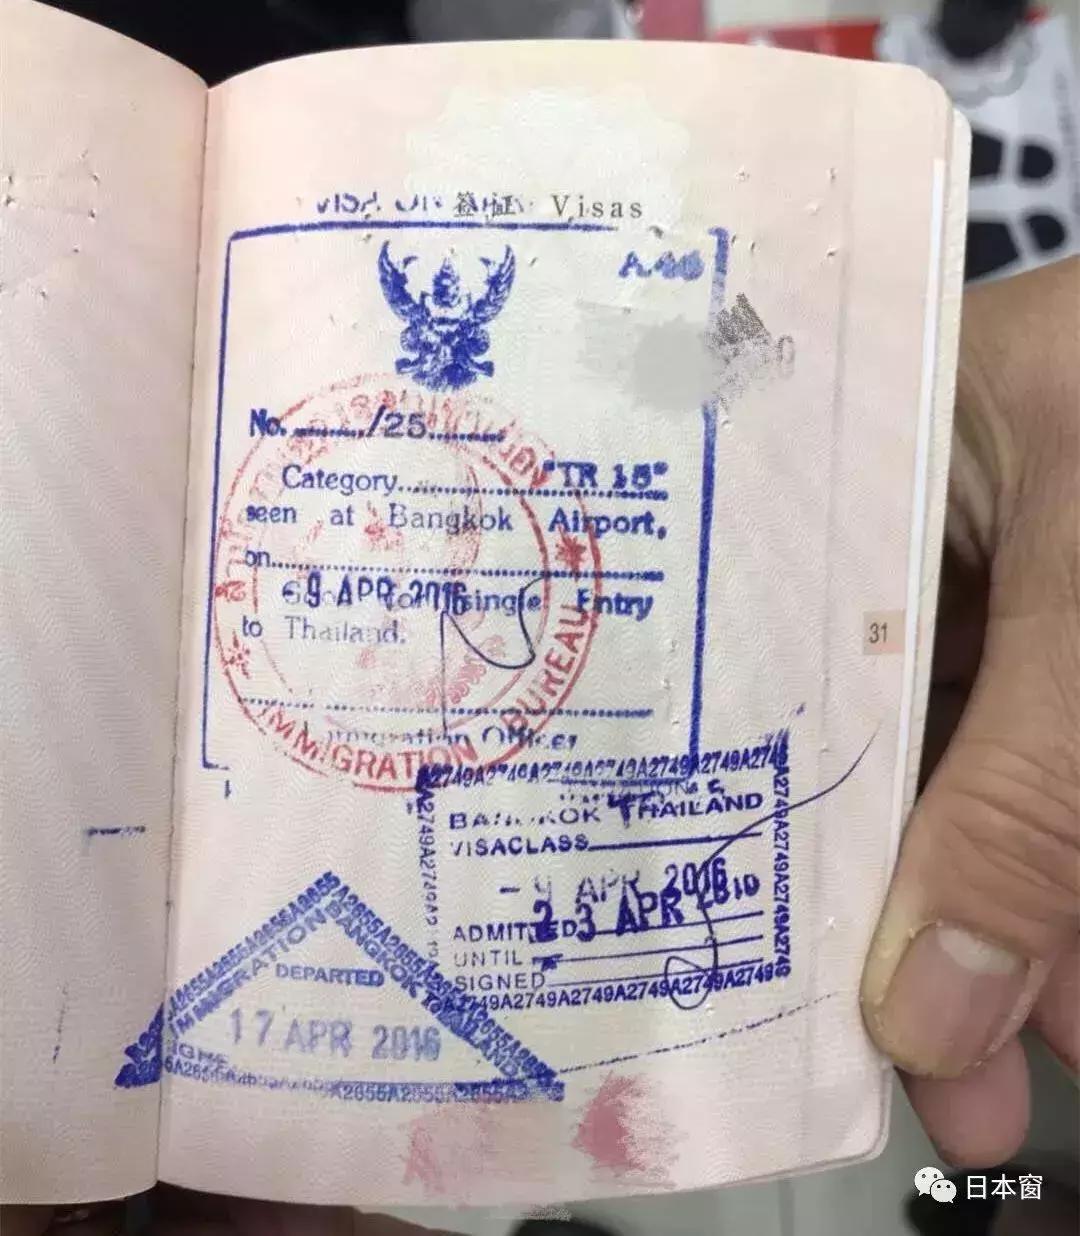 签证 Visas
A46
No. ......../25........
Category........"TR 15"
seen at Bangkok Airport,
on........
-9 APR 2016
single Entry
to Thailand.
Immigration Officer
IMMIGRATION BUREAU
31
A2749A2749A2749A2749A2749A2749A2749
BANGKOK THAILAND
VISACLASS
-9 APR 2016
23 APR 2016
ADMITTED
UNTIL
SIGNED
A2749A2749A2749A2749A2749A2749
IMMIGRATION BANGKOK THAILAND
DEPARTED
17 APR 2016
日本窗